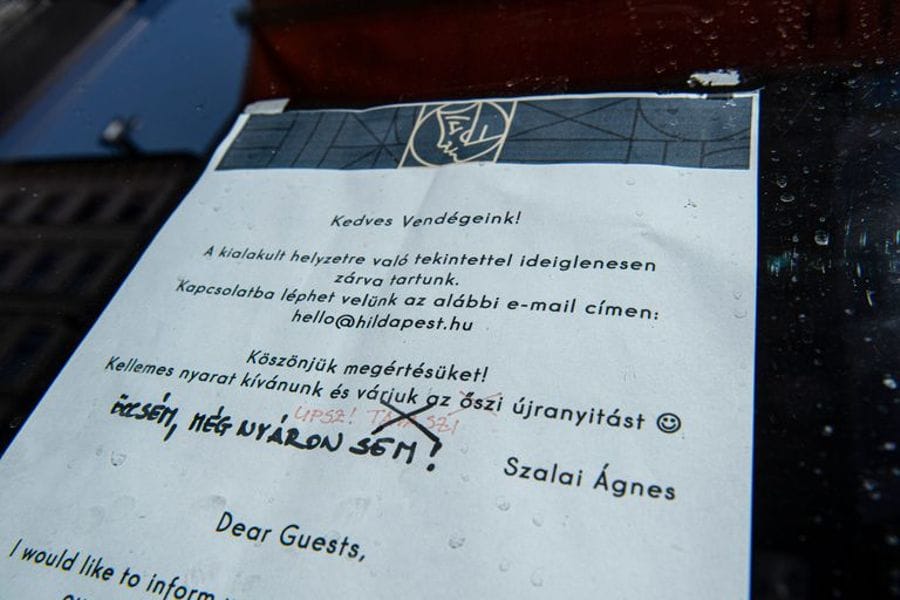 Kedves Vendégeink!
A kialakult helyzetre való tekintettel ideiglenesen
zárva tartunk.
Kapcsolatba léphet velünk az alábbi e-mail címen:
hello@hildapest.hu
Köszönjük megértésüket!
Kellemes nyarat kívánunk és várjuk az őszi újranyitást ☺
UPSZ! TAVASZI
ÖCSÉM, MÉG NYÁRON SEM!
Szalai Ágnes
Dear Guests,
I would like to inform